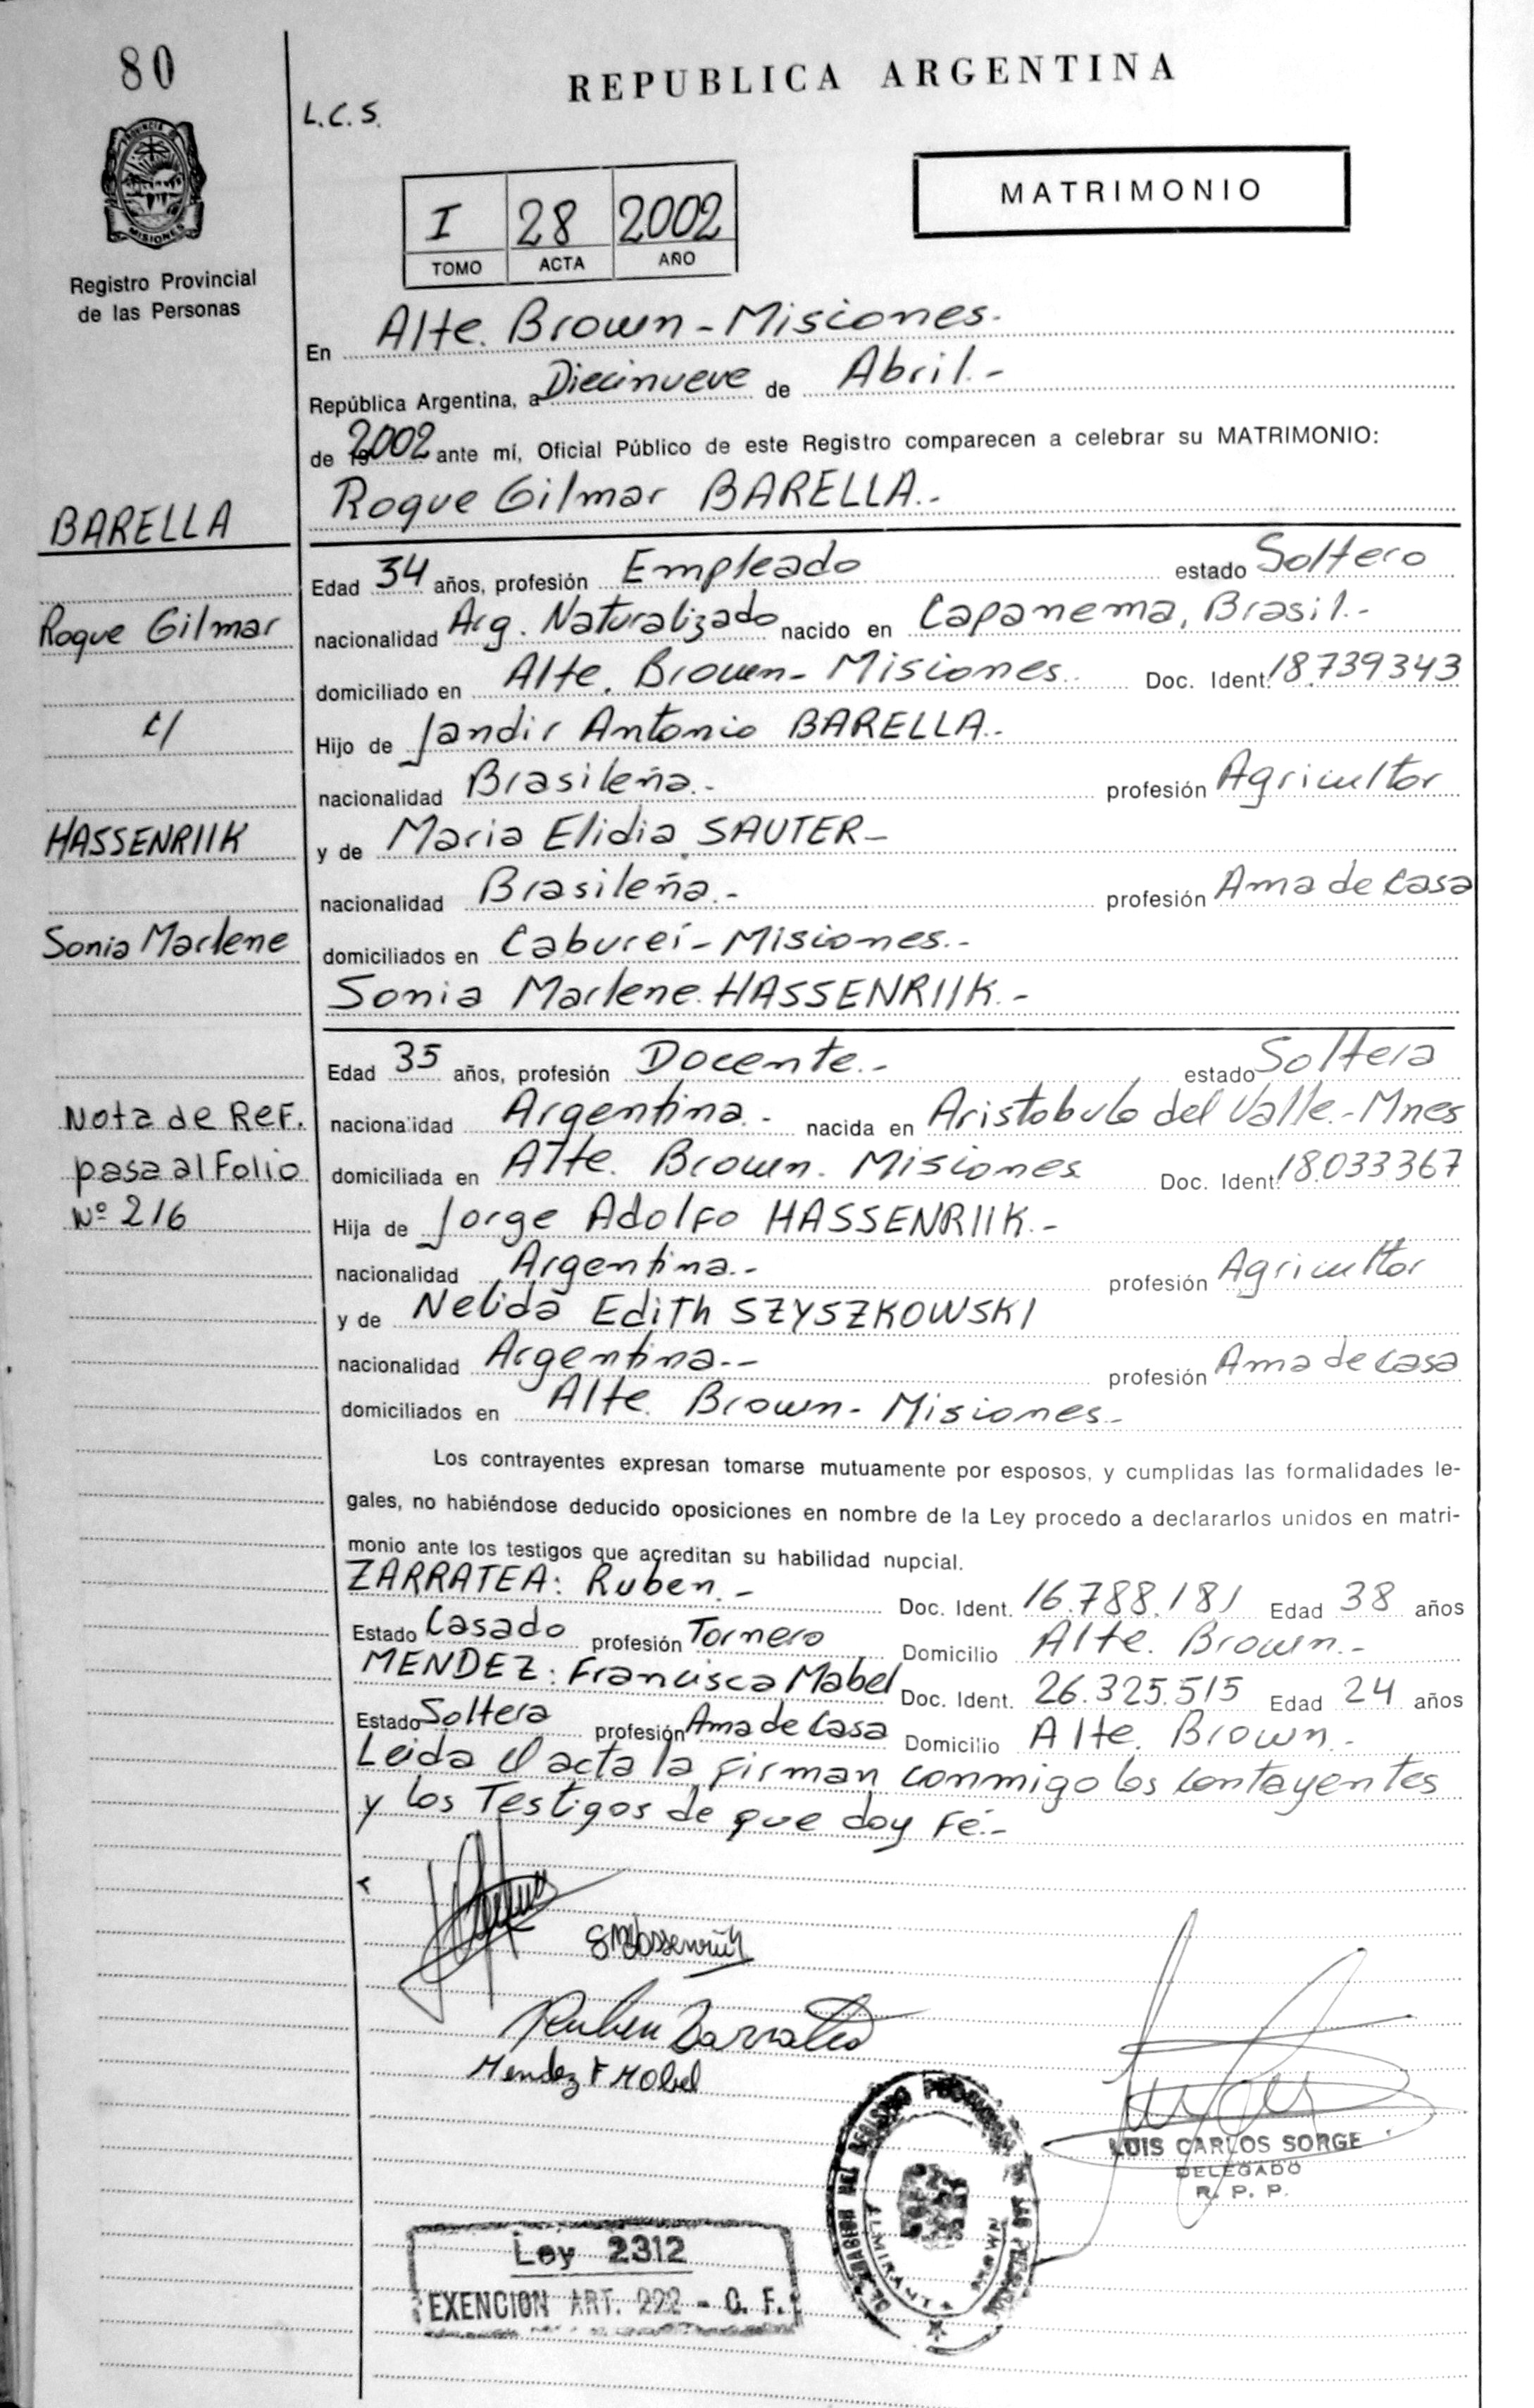 80
REPUBLICA ARGENTINA
L.C.S.
PROVINCIA DE
MISIONES
Registro Provincial
de las Personas
I 28 2002
TOMO ACTA AÑO
MATRIMONIO
En Alte. Brown - Misiones.-
República Argentina, a Diecinueve de Abril.-
de 2002 ante mí, Oficial Público de este Registro comparecen a celebrar su MATRIMONIO:
Roque Gilmar BARELLA.-
BARELLA
Edad 34 años, profesión Empleado estado Soltero
Roque Gilmar
nacionalidad Arg. Naturalizado nacido en Capanema, Brasil.-
domiciliado en Alte. Brown - Misiones. Doc. Ident. 18.739343
c/
Hijo de Jandir Antonio BARELLA.-
nacionalidad Brasileña.- profesión Agricultor
HASSENRIIK
y de Maria Elidia SAUTER-
nacionalidad Brasileña.- profesión Ama de casa
Sonia Marlene
domiciliados en Cabureí - Misiones.-
Sonia Marlene HASSENRIIK.-
Edad 35 años, profesión Docente.- estado Soltera
Nota de REF.
pasa al Folio
Nº 216
nacionalidad Argentina.- nacida en Aristobulo del Valle.-Mnes
domiciliada en Alte. Brown. Misiones Doc. Ident. 18.033367
Hija de Jorge Adolfo HASSENRIIK.-
nacionalidad Argentina.- profesión Agricultor
y de Nelida Edith SZYSZKOWSKI
nacionalidad Argentina.-- profesión Ama de casa
domiciliados en Alte. Brown - Misiones.-
Los contrayentes expresan tomarse mutuamente por esposos, y cumplidas las formalidades le-
gales, no habiéndose deducido oposiciones en nombre de la Ley procedo a declararlos unidos en matri-
monio ante los testigos que acreditan su habilidad nupcial.
ZARRATEA: Ruben.- Doc. Ident. 16.788.181 Edad 38 años
Estado Casado profesión Tornero Domicilio Alte. Brown.-
MENDEZ: Francisca Mabel Doc. Ident. 26.325.515 Edad 24 años
Estado Soltera profesión Ama de casa Domicilio Alte. Brown.-
Leida el acta la firman conmigo los contayentes
y los Testigos de que doy Fé.-
SMHassenriik
Ruben Zarratea
Mendez F Mabel
LUIS CARLOS SORGE
DELEGADO
R. P. P.
ALMIRANTE BROWN
Ley 2312
EXENCION ART. 222 - C. F.